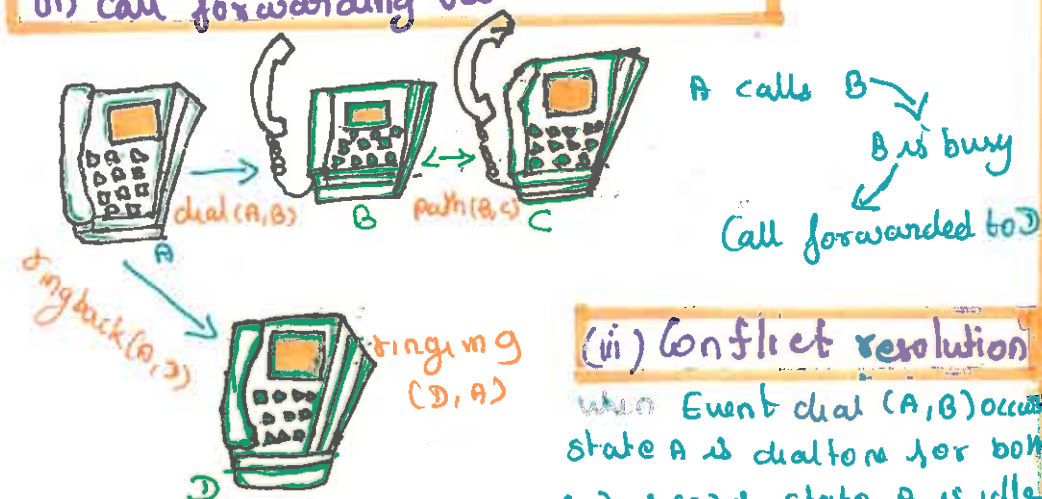 call forwarding
A calls B
B is busy
Call forwarded to D
dial (A,B)
A
B
path (B,C)
C
ringback (A,D)
ringing
(D,A)
D
(iii) Conflict resolution
when Event dial (A,B) occurs
state A is dialtone for both
state A is idle